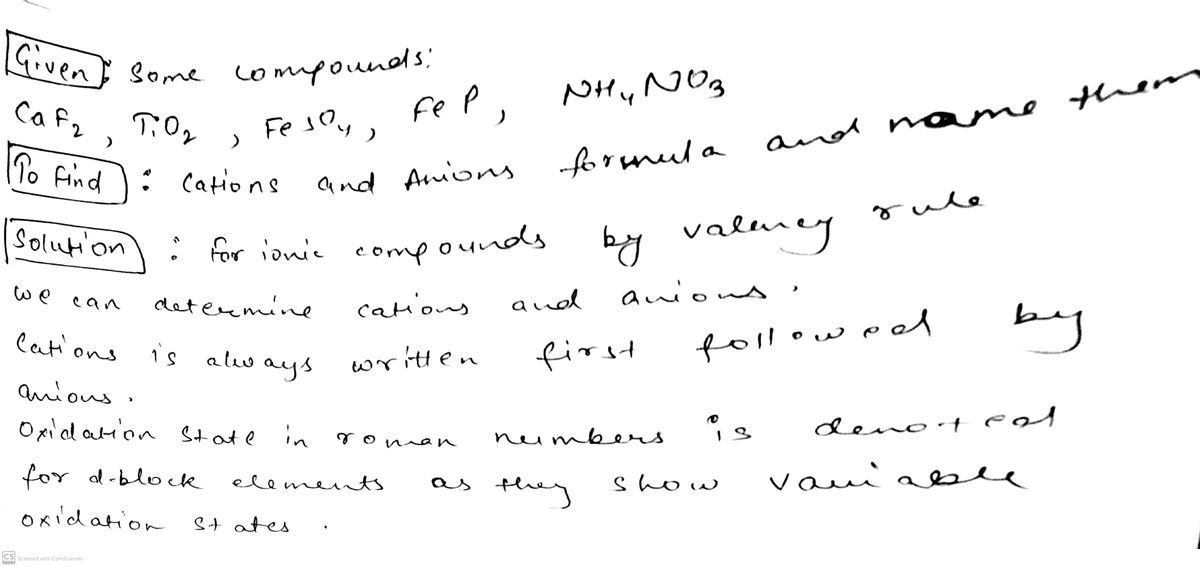 Given : Some compounds:
CaF2 , TiO2 , FeSO4 , FeP , NH4NO3
To find : Cations and Anions formula and name them
Solution : for ionic compounds by valency rule
we can determine cations and anions .
Cations is always written first followed by
anions .
Oxidation State in roman numbers is denoted
for d-block elements as they show variable
oxidation states .
CS Scanned with CamScanner